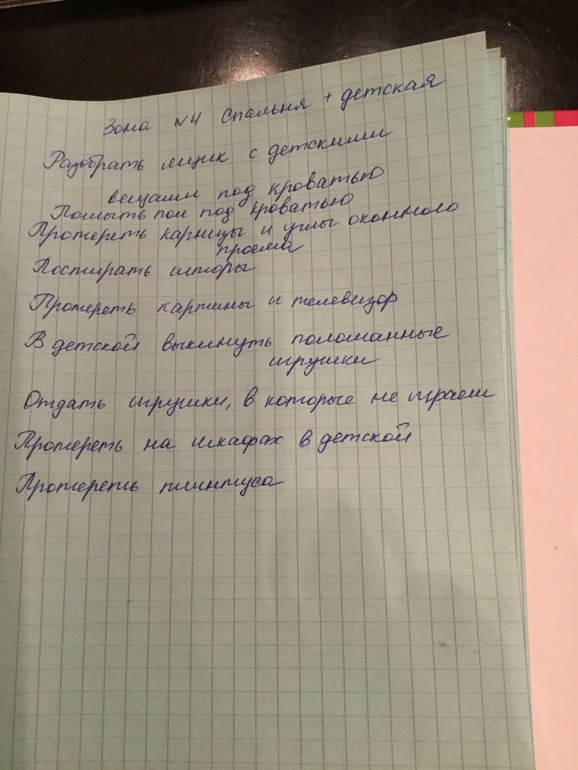 Зона №4 Спальня + детская
Разобрать ящик с детскими
вещами под кроватью
Помыть пол под кроватью
Протереть карнизы и углы оконного
проема
Постирать шторы
Протереть картины и телевизор
В детской выкинуть поломанные
игрушки
Отдать игрушки, в которые не играем
Протереть на шкафах в детской
Протереть плинтуса